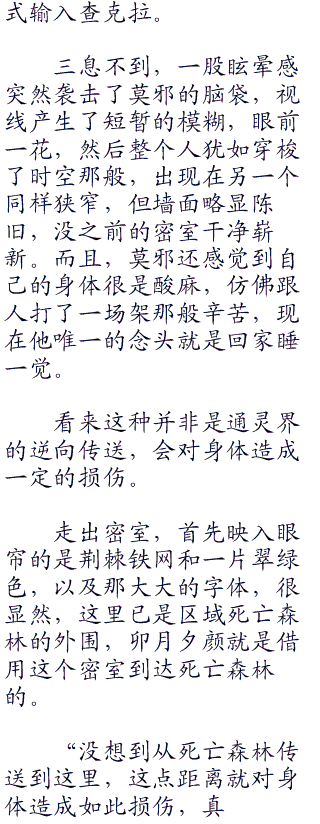 式输入查克拉。
三息不到，一股眩晕感
突然袭击了莫邪的脑袋，视
线产生了短暂的模糊，眼前
一花，然后整个人犹如穿梭
了时空那般，出现在另一个
同样狭窄，但墙面略显陈
旧，没之前的密室干净崭
新。而且，莫邪还感觉到自
己的身体很是酸麻，仿佛跟
人打了一场架那般辛苦，现
在他唯一的念头就是回家睡
一觉。
看来这种并非是通灵界
的逆向传送，会对身体造成
一定的损伤。
走出密室，首先映入眼
帘的是荆棘铁网和一片翠绿
色，以及那大大的字体，很
显然，这里已是区域死亡森
林的外围，卯月夕颜就是借
用这个密室到达死亡森林
的。
“没想到从死亡森林传
送到这里，这点距离就对身
体造成如此损伤，真